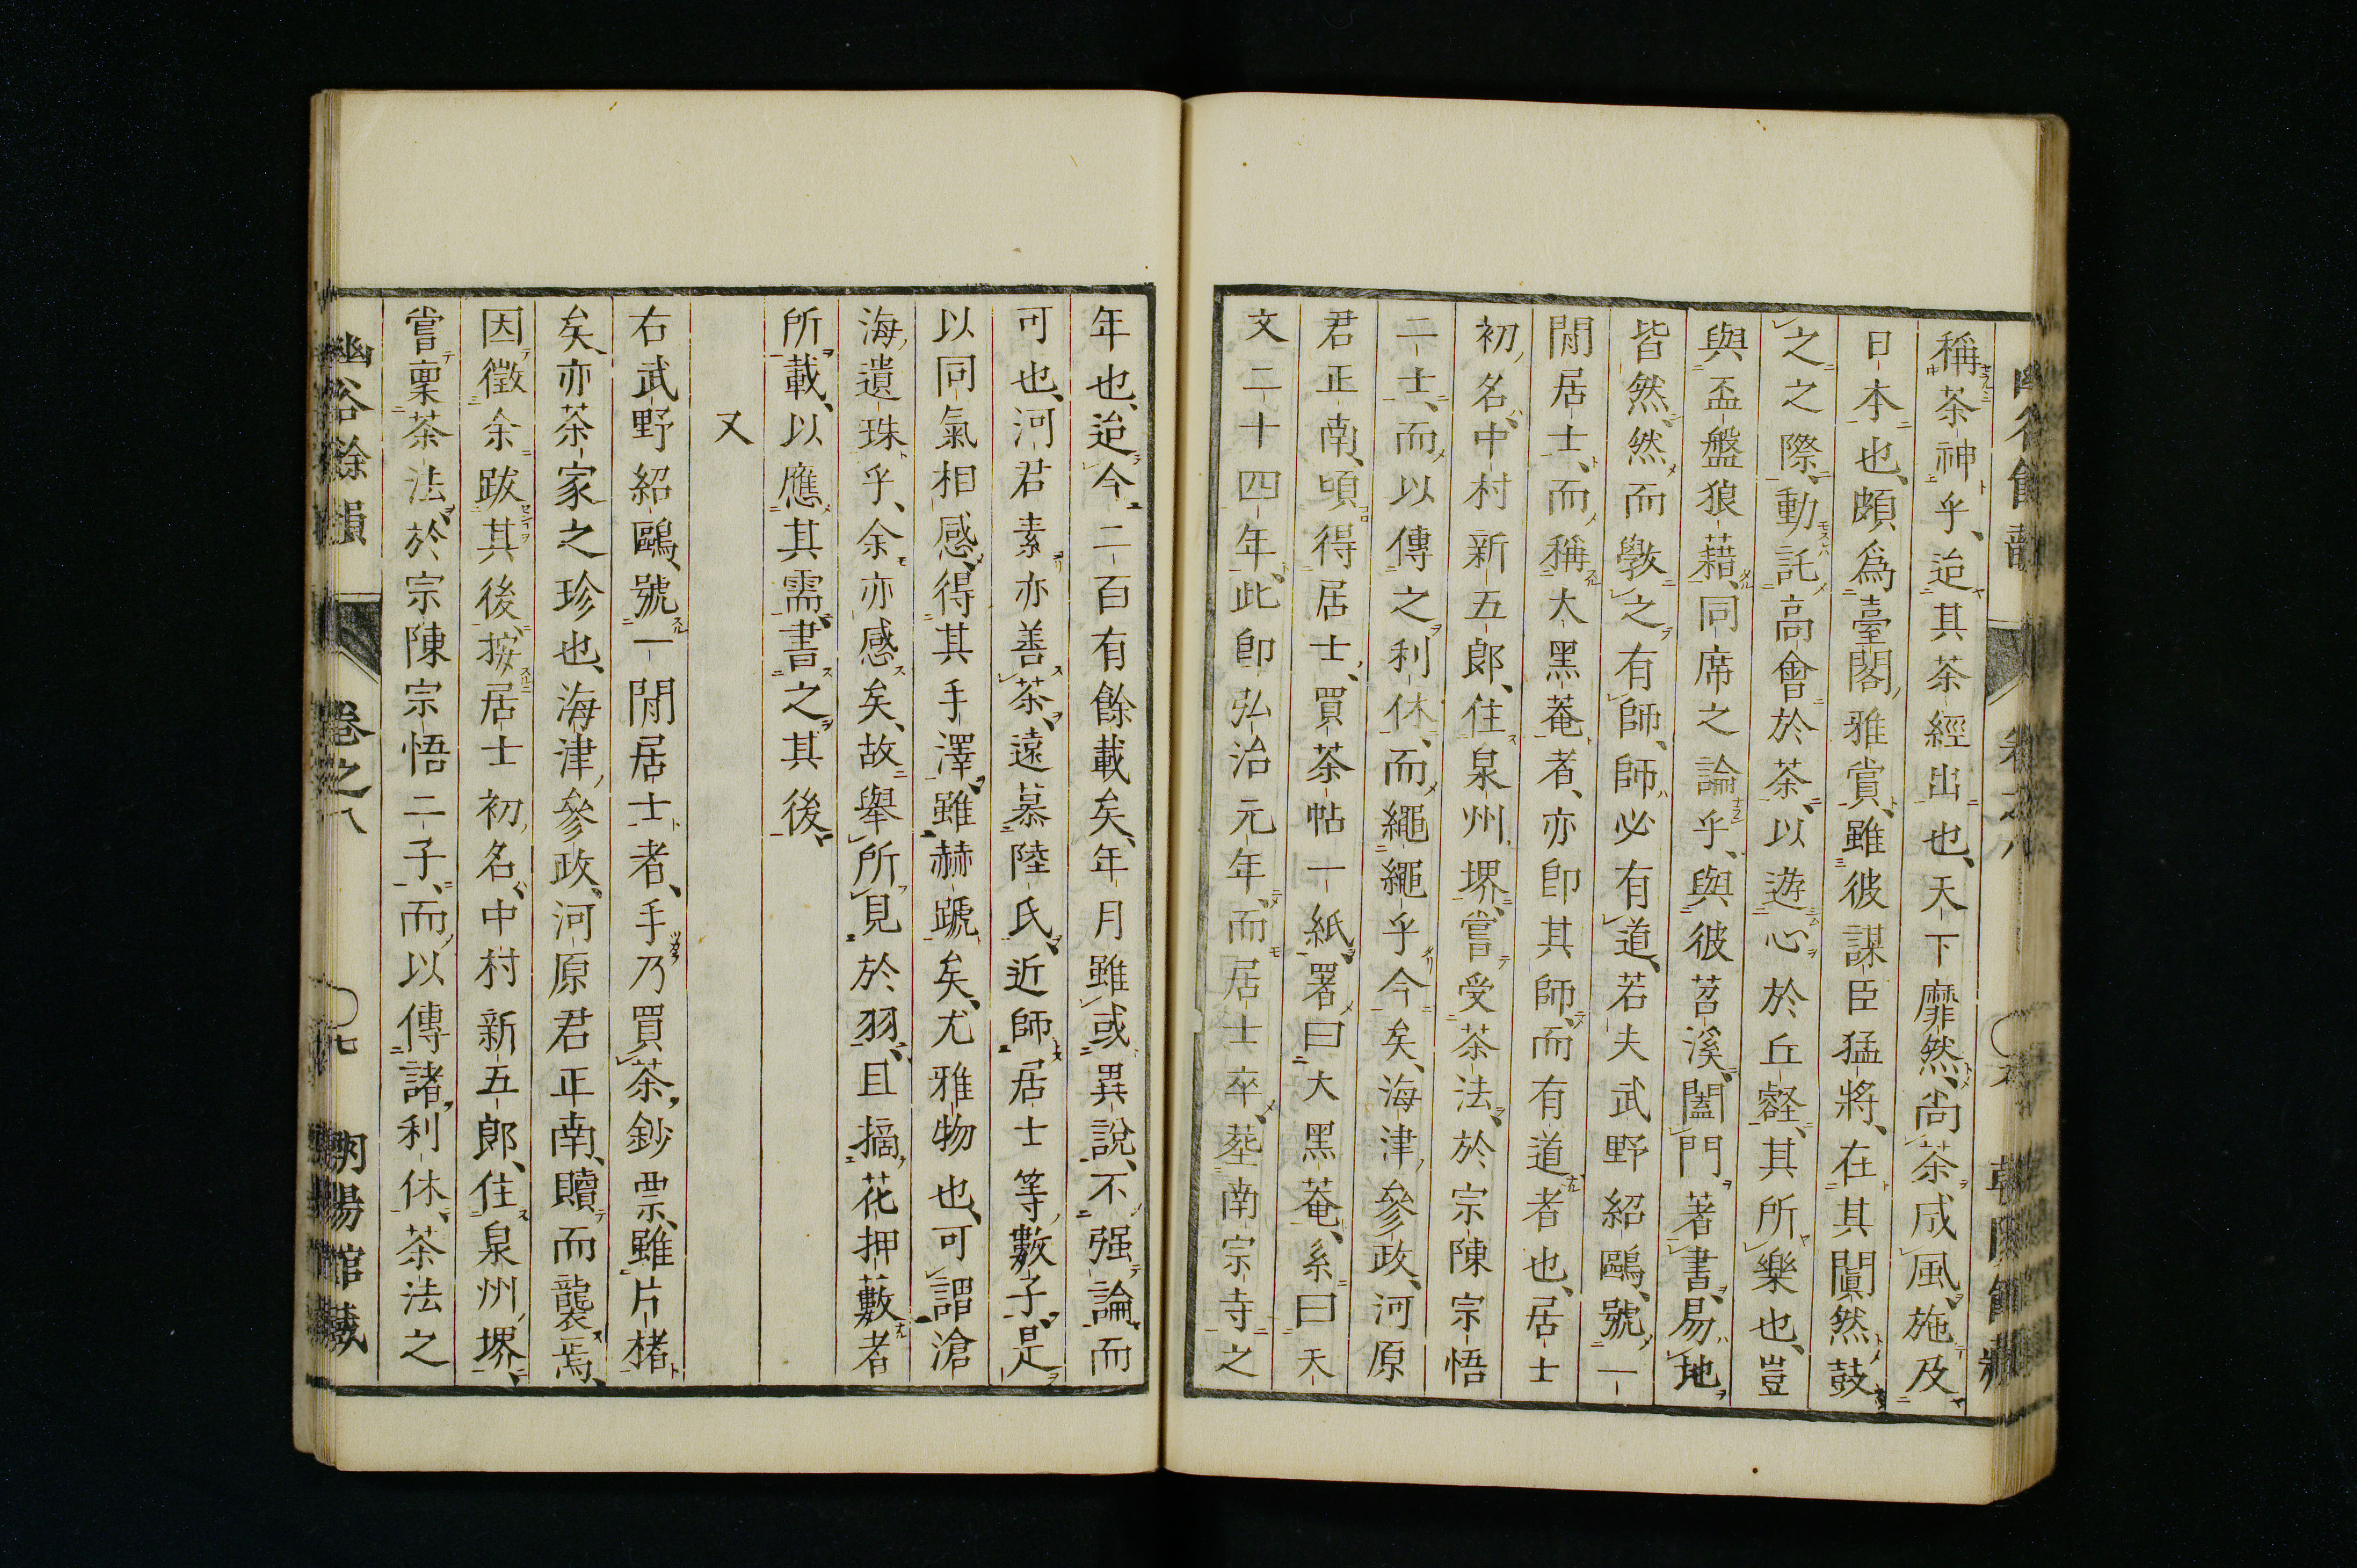 稱茶神乎、迨其茶經出也、天下靡然、尚茶成風、施及
日本也、頗爲臺閣雅賞、雖彼謀臣猛將、在其闐然鼓
之之際、動託高會於茶、以遊心於丘壑、其所樂也、豈
與盃盤狼藉、同席之論乎、與彼苕溪、闔門著書、易地
皆然、然而斆之有師、師必有道、若夫武野紹鷗、號一
閒居士、而稱大黑菴者、亦卽其師、而有道者也、居士
初名、中村新五郎、住泉州堺、嘗受茶法、於宗陳宗悟
二士、而以傳之利休、而繩繩乎今矣、海津參政、河原
君正南、頃得居士、買茶帖一紙、署曰大黑菴、系曰天
文二十四年、此卽弘治元年、而居士卒、葬南宗寺之
年也、迨今二百有餘載矣、年月雖或異說、不强論而
可也、河君素亦善茶、遠慕陸氏、近師居士等數子、是
以同氣相感、得其手澤、雖赫蹏矣、尤雅物也、可謂滄
海遺珠乎、余亦感矣、故擧所見於羽、且摘花押藪者
所載、以應其需、書之其後、
又
右武野紹鷗、號一閒居士者、手乃買茶鈔票、雖片楮
矣亦茶家之珍也、海津參政、河原君正南、贖而襲焉、
因徵余跋其後、按居士初名、中村新五郎、住泉州堺、
嘗稟茶法、於宗陳宗悟二子、而以傳諸利休、茶法之
幽谷餘韻 卷之八 七 朝陽館藏